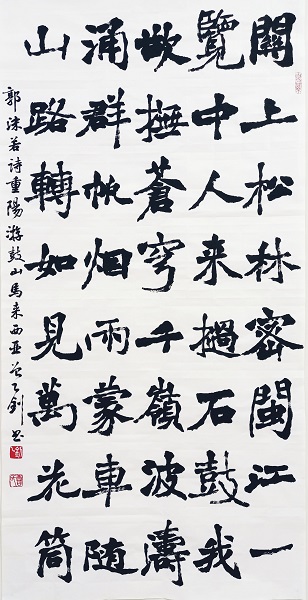 關上松林密閩江一
覽中人来撾石鼓我
欲撫蒼穹千嶺波濤
涌群帆烟雨蒙車随
山路轉如見萬花筒
郭沫若詩重陽游鼓山馬来西亚